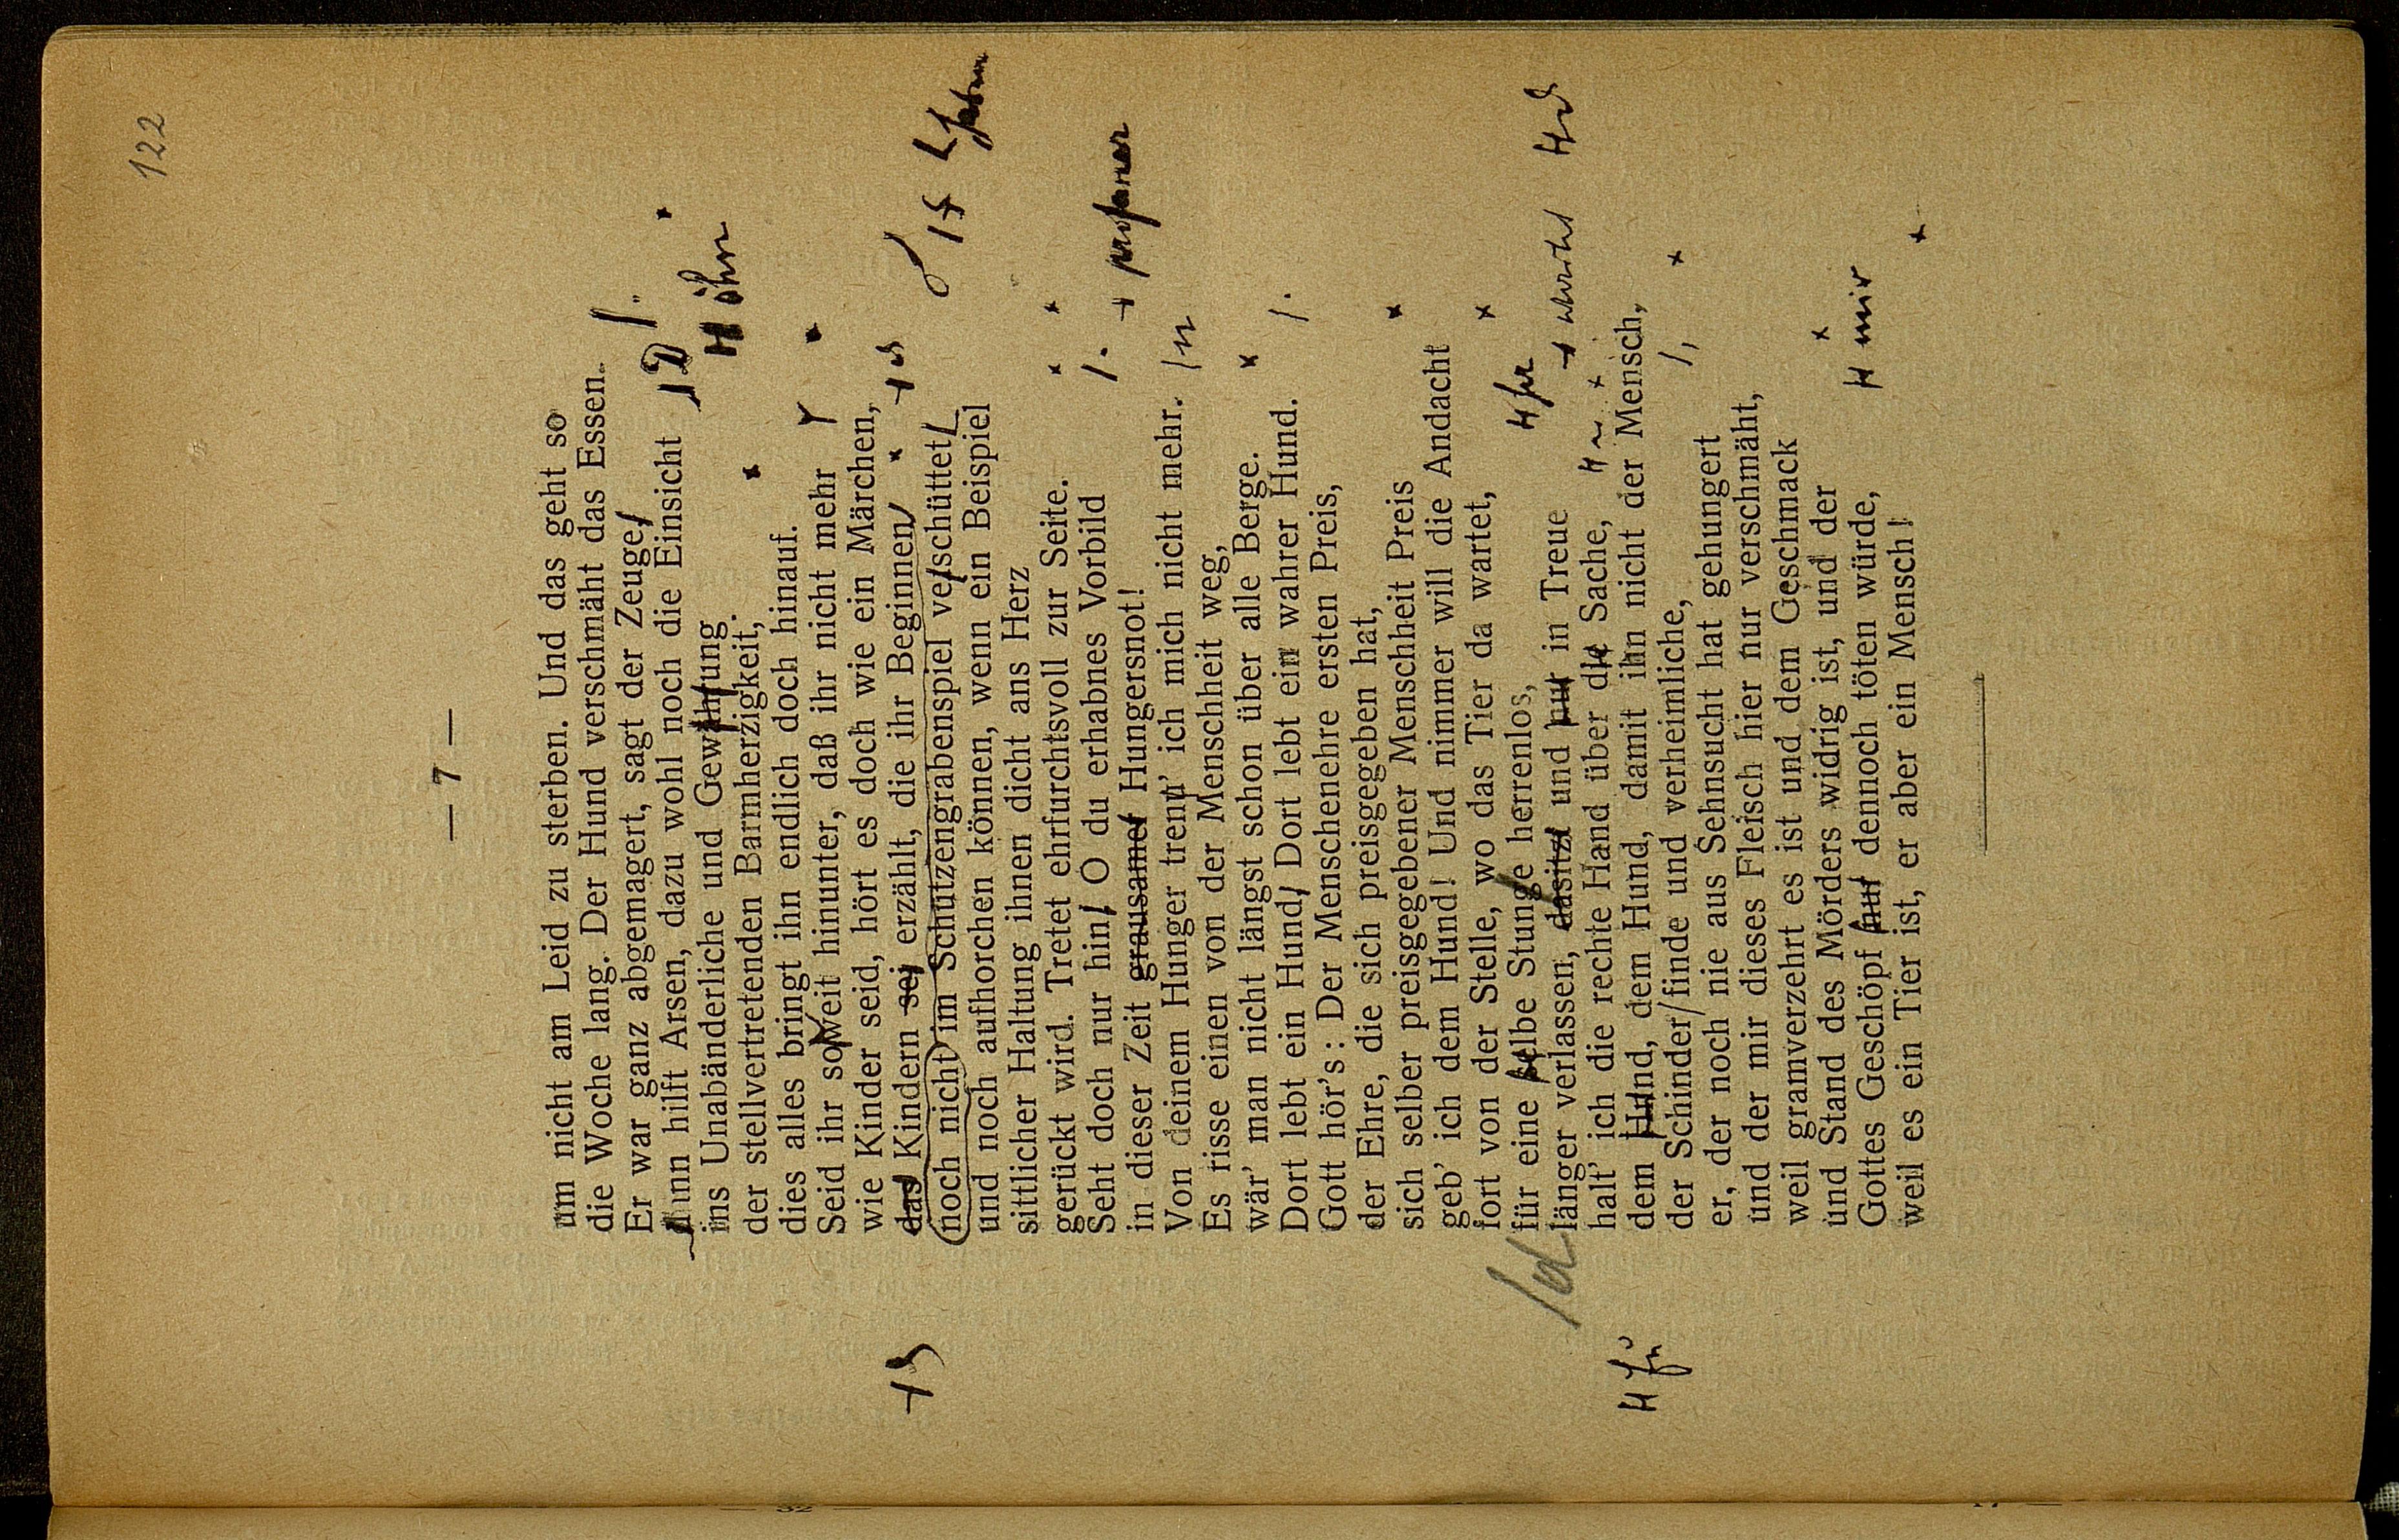 122
— 7 —
um nicht am Leid zu sterben. Und das geht so
die Woche lang. Der Hund verschmäht das Essen.
Er war ganz abgemagert, sagt der Zeuge,
Nunn hilft Arsen, dazu wohl noch die Einsicht
ins Unabänderliche und Gewährung
H öhn
der stellvertretenden Barmherzigkeit,
dies alles bringt ihn endlich doch hinauf.
Seid ihr soweit hinunter, daß ihr nicht mehr
wie Kinder seid, hört es doch wie ein Märchen,
das Kindern sei erzählt, die ihr Beginnen
noch nicht im Schützengrabenspiel verschüttet
und noch aufhorchen können, wenn ein Beispiel
sittlicher Haltung ihnen dicht ans Herz
gerückt wird. Tretet ehrfurchtsvoll zur Seite.
Seht doch nur hin, O du erhabnes Vorbild
in dieser Zeit grausamer Hungersnot!
profaner
Von deinem Hunger trenn' ich mich nicht mehr.
Es risse einen von der Menschheit weg,
wär' man nicht längst schon über alle Berge.
Dort lebt ein Hund, Dort lebt ein wahrer Hund.
Gott hör's: Der Menschenehre ersten Preis,
der Ehre, die sich preisgegeben hat,
sich selber preisgegebener Menschheit Preis
geb' ich dem Hund! Und nimmer will die Andacht
fort von der Stelle, wo das Tier da wartet,
für eine selbe Stunge herrenlos,
länger verlassen, dasitzt und nur in Treue
wartet
halt' ich die rechte Hand über die Sache,
dem Hund, dem Hund, damit ihn nicht der Mensch,
der Schinder finde und verheimliche,
er, der noch nie aus Sehnsucht hat gehungert
und der mir dieses Fleisch hier nur verschmäht,
weil gramverzehrt es ist und dem Geschmack
und Stand des Mörders widrig ist, und der
Gottes Geschöpf nur dennoch töten würde,
H mir
weil es ein Tier ist, er aber ein Mensch!